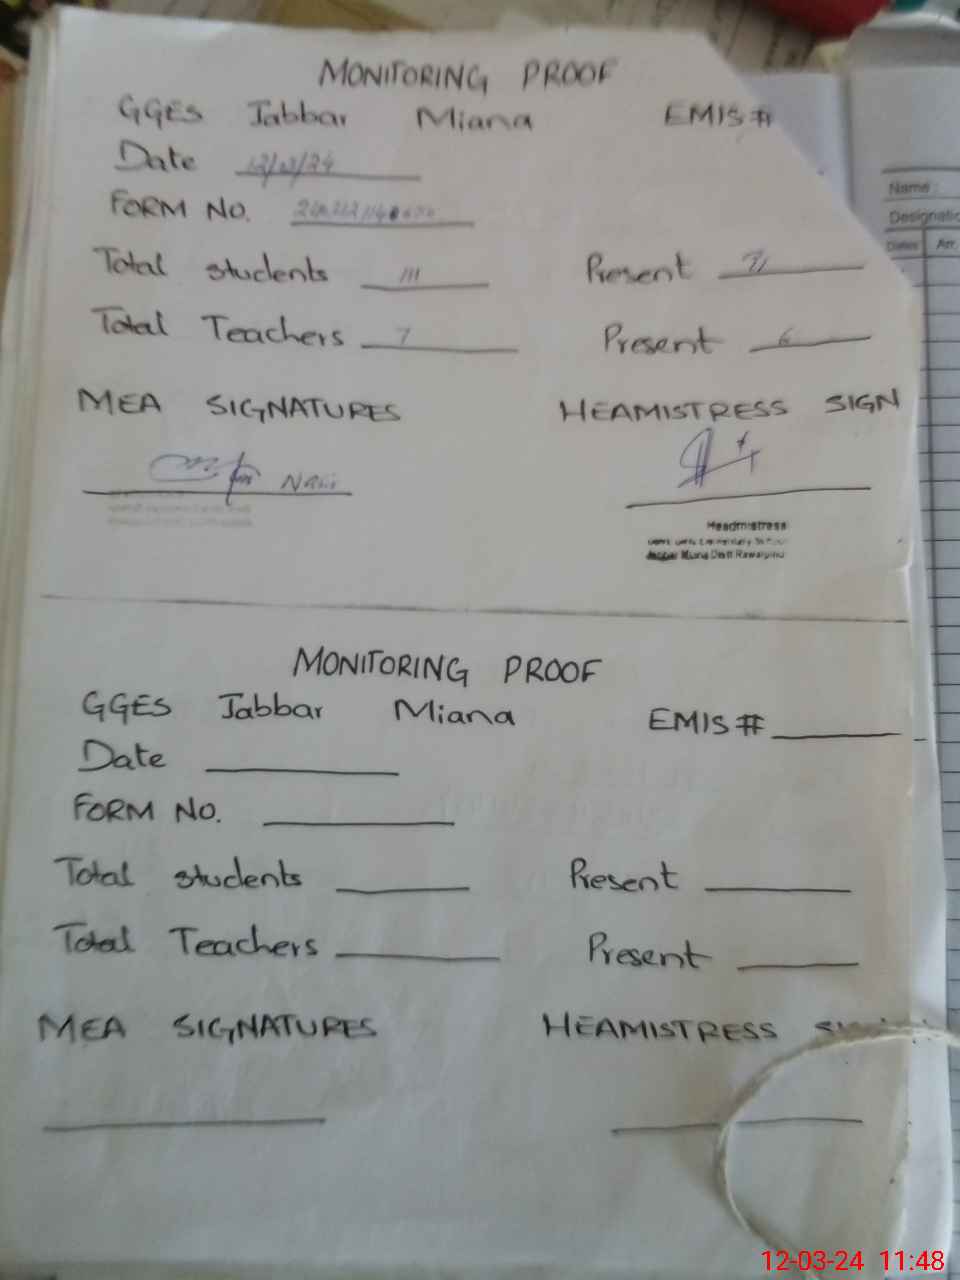 MONITORING PROOF
GGES Jabbar Miana EMIS#
Date 12/03/24
FORM NO.
Total students 111 Present 71
Total Teachers 7 Present 6
MEA SIGNATURES HEAMISTRESS SIGN
Headmistress
Jabbar Miana Distt Rawalpindi
MONITORING PROOF
GGES Jabbar Miana EMIS#
Date
FORM NO.
Total students Present
Total Teachers Present
MEA SIGNATURES HEAMISTRESS
Name :
Dates Arr.
12-03-24 11:48